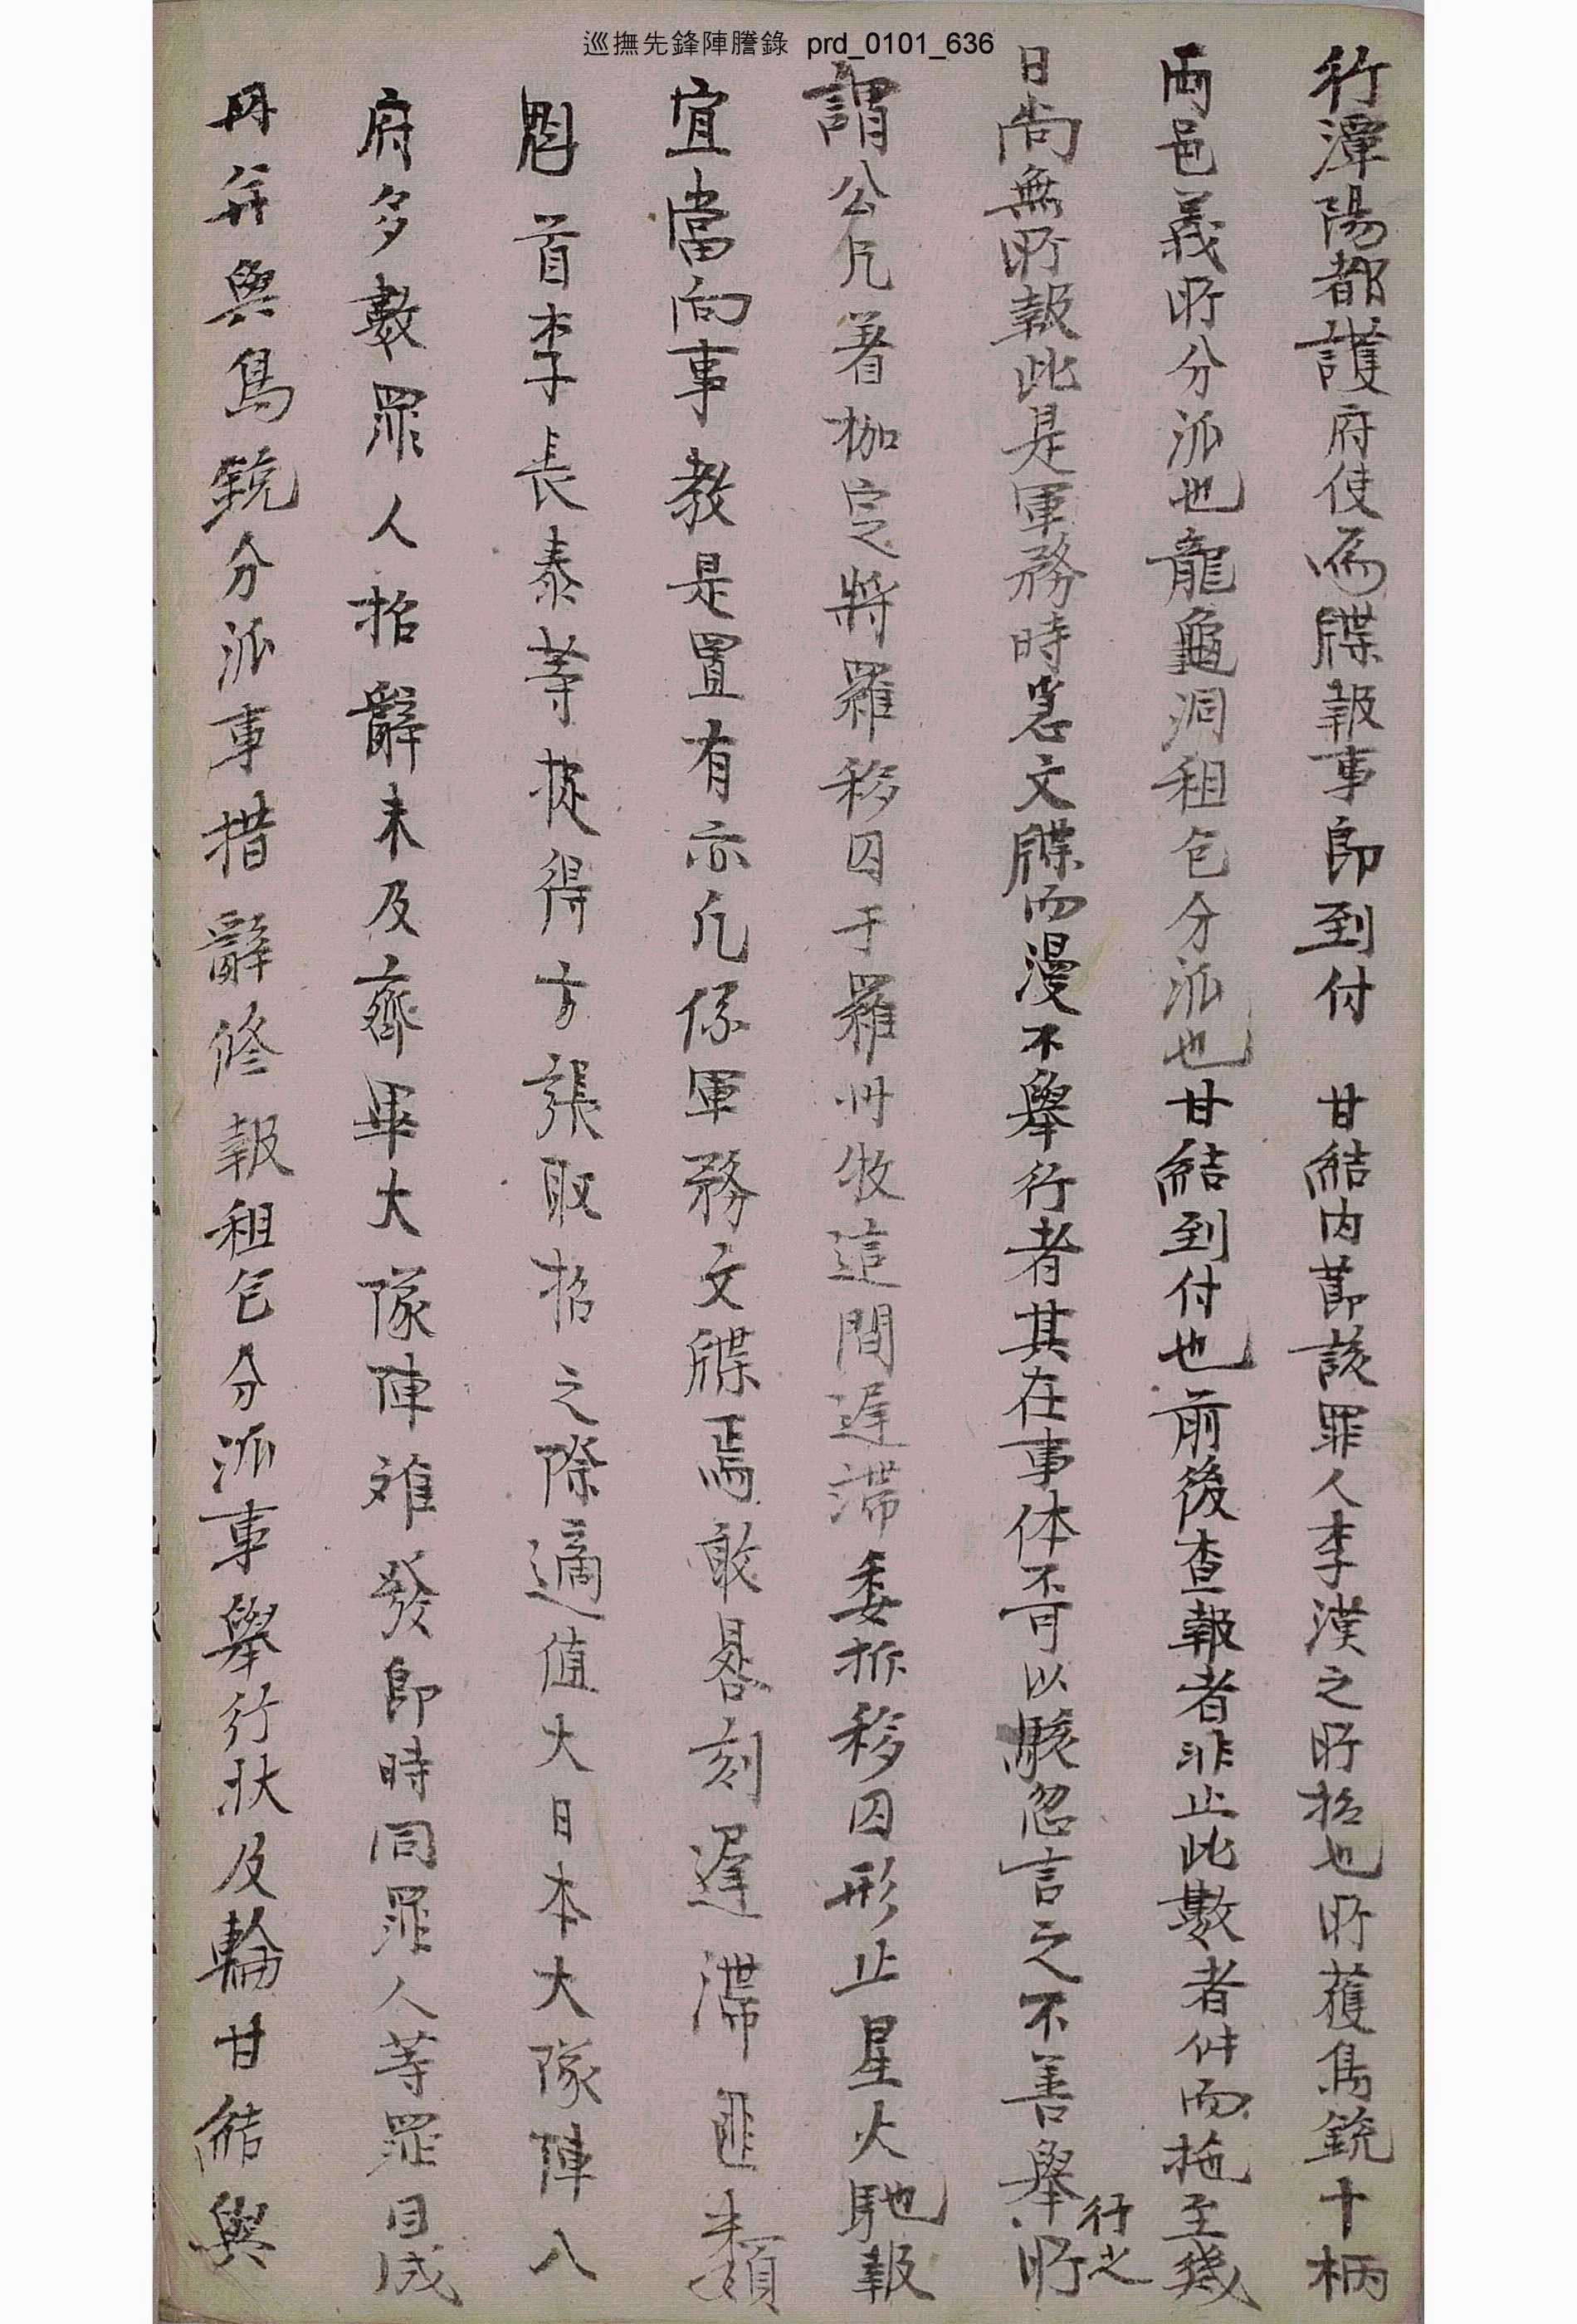 巡撫先鋒陣謄錄 prd_0101_636
行潭陽都護府使爲牒報事卽到付 甘結內節該罪人李漢之所招也所獲鳥銃十柄
両邑義所分派也龍龜洞租包分派也甘結到付也前後查報者非止此數者件而拖至幾
日尙無所報此是軍務時急文牒而漫不擧行者其在事体不可以駭忽言之不善擧行之所
謂公兄着枷定將羅移囚于羅州牧這間遲滯委折移囚形止星火馳報
宜當向事敎是置有亦凡係軍務文牒焉敢晷刻遲滯匪類
魁首李長泰等捉得方張取招之際適値大日本大隊陣入
府多數罪人招辭未及齊畢大隊陣離發卽時同罪人等罪目成
冊并與鳥銃分派事措辭修報租包分派事擧行狀及輪甘結與